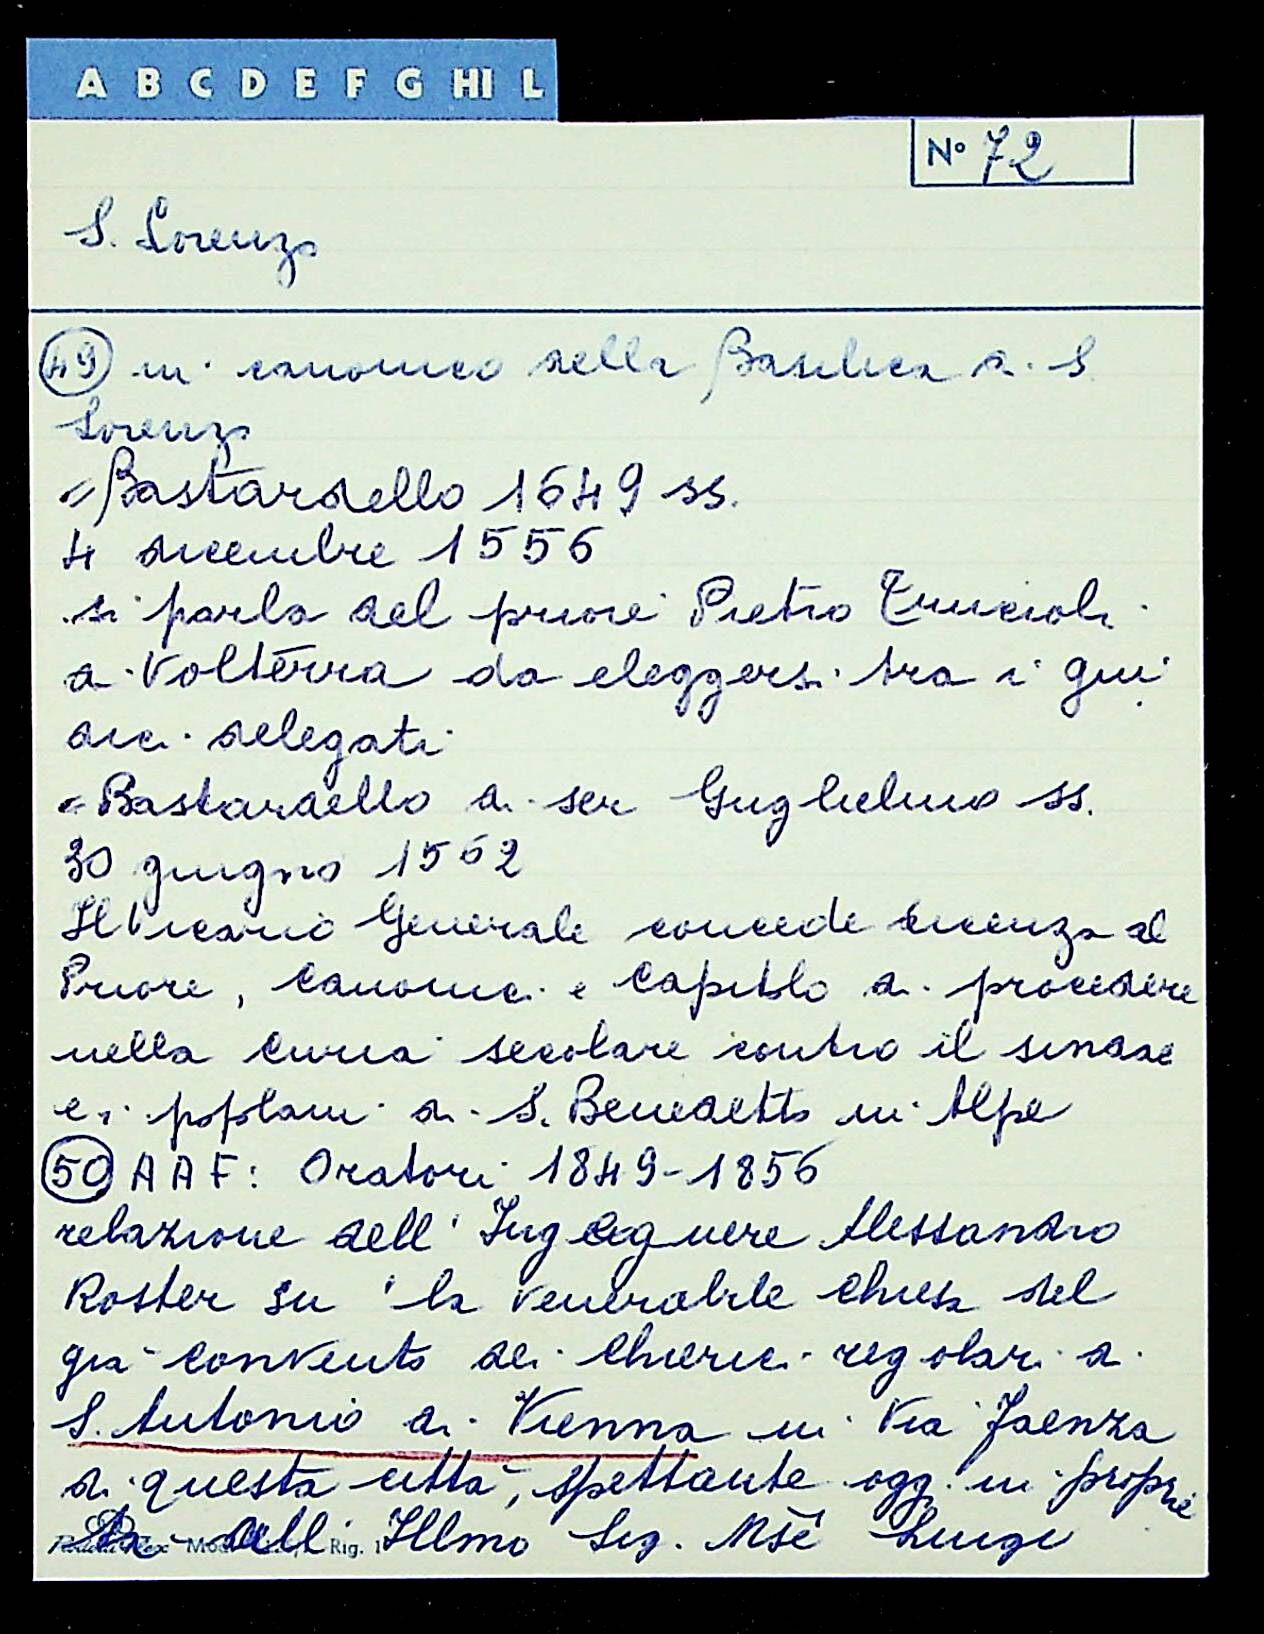 A B C D E F G HI L
N° 72
S. Lorenzo
49 un canonico della Basilica di S.
Lorenzo
= Bastardello 1649 ss.
4 dicembre 1556
si parla del priore Pietro Trucioli
a Volterra da eleggersi tra i giu
dici delegati
= Bastardello di ser Guglielmo ss.
30 giugno 1562
Il Vicario Generale concede licenza al
Priore, canonici e capitolo di procedere
nella curia secolare contro il sindac
e i popolani di S. Benedetto in Alpe
50 AAF: Oratori 1849-1856
relazione dell' Ingegnere Alessandro
Roster su la venerabile chiesa del
già convento dei Chierici regolari di
S. Antonio di Vienna in Via Faenza
di questa città, spettante oggi in proprie
tà dell' Illmo Sig. Mse Luigi
Rig. 1